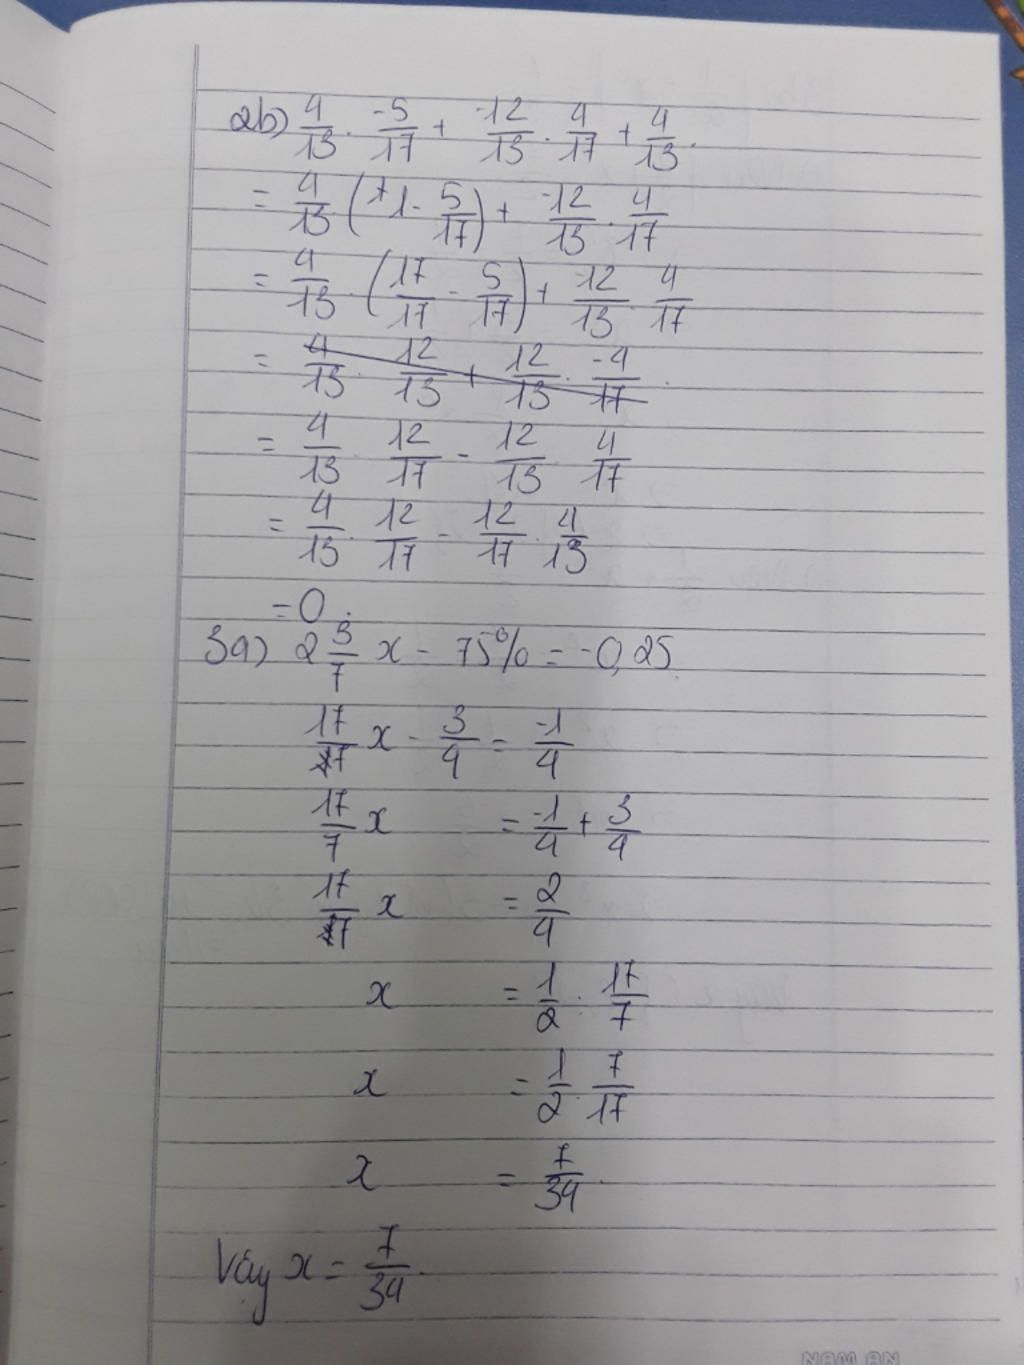 2b) 4/13 . -5/17 + -12/13 . 4/17 + 4/13.
= 4/13 (+1 - 5/17) + -12/13 . 4/17
= 4/13 . (17/17 - 5/17) + -12/13 . 4/17
= 4/13 . 12/13 + 12/13 . -4/17
= 4/13 . 12/17 - 12/13 . 4/17
= 4/13 . 12/17 - 12/17 . 4/13
= 0.
3a) 2 3/7 x - 75% = -0,25
17/7 x - 3/4 = -1/4
17/7 x = -1/4 + 3/4
17/7 x = 2/4
x = 1/2 . 17/7
x = 1/2 . 7/17
x = 7/34.
Vây x = 7/34.
NAM AN